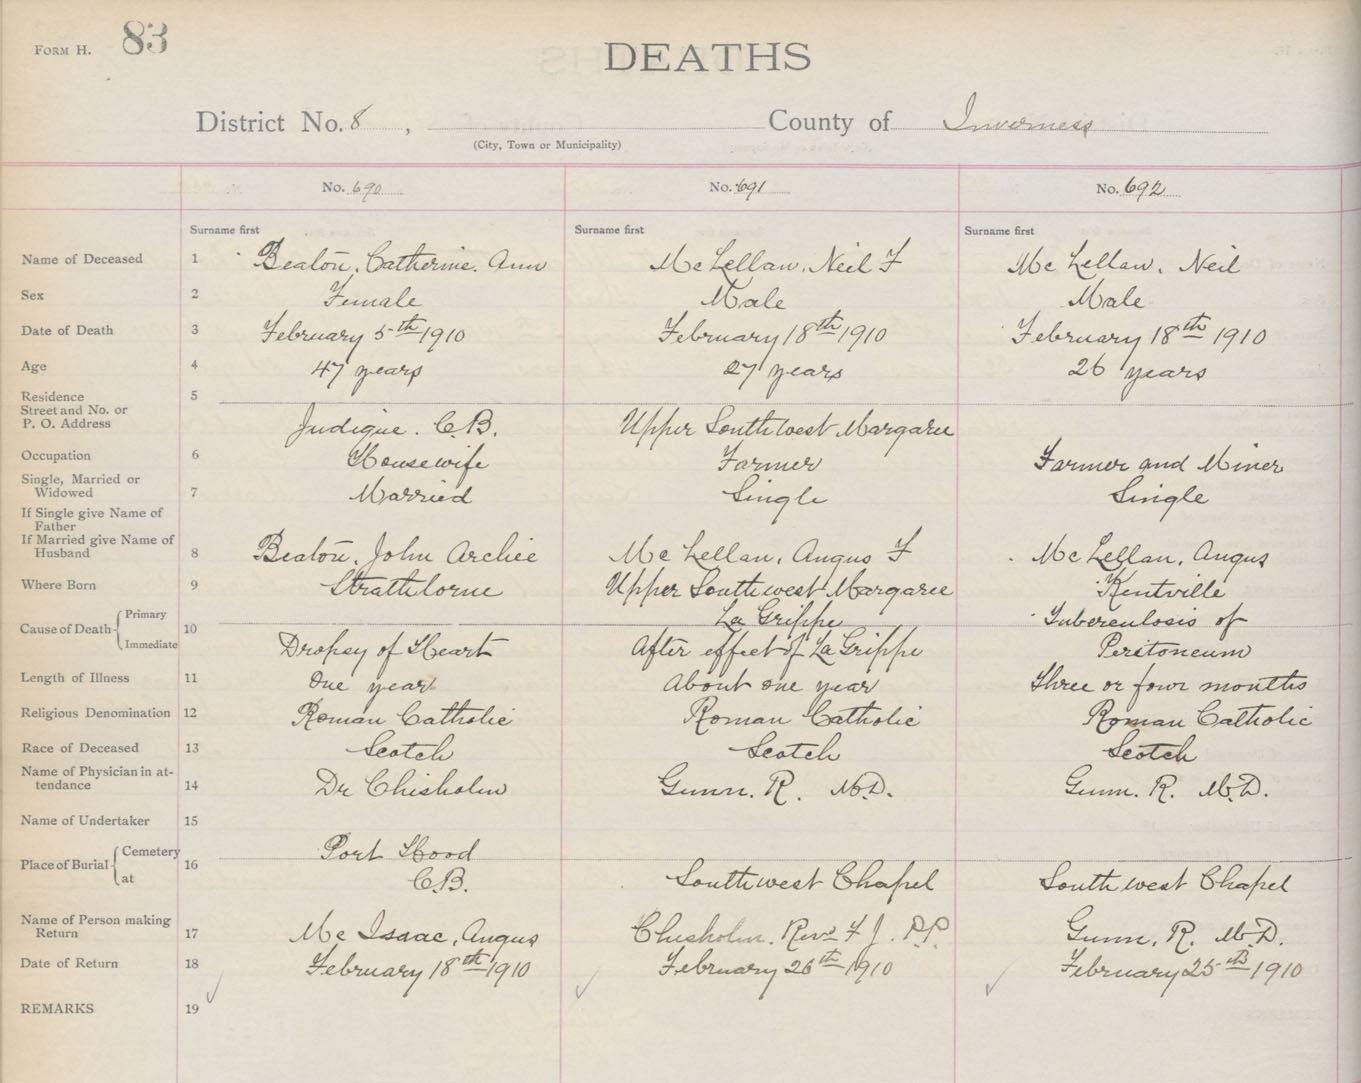 FORM H. 83
DEATHS
District No. 8 , County of Inverness
(City, Town or Municipality)
No. 690 No. 691 No. 692
Surname first Surname first Surname first
Name of Deceased 1 Beaton, Catherine. Ann Mc Lellan, Neil F Mc Lellan, Neil
Sex 2 Female Male Male
Date of Death 3 February 5th 1910 February 18th 1910 February 18th 1910
Age 4 47 years 27 years 26 years
Residence 5
Street and No. or
P. O. Address Judique. C.B. Upper Southwest Margaree
Occupation 6 Housewife Farmer Farmer and Miner
Single, Married or
Widowed 7 Married Single Single
If Single give Name of
Father
If Married give Name of
Husband 8 Beaton, John Archie Mc Lellan, Angus F Mc Lellan, Angus
Where Born 9 Strathlorne Upper Southwest Margaree Kentville
Primary La Grippe Tuberculosis of
Cause of Death 10
Immediate Dropsy of Heart After effect of La Grippe Peritoneum
Length of Illness 11 One year About one year Three or four months
Religious Denomination 12 Roman Catholic Roman Catholic Roman Catholic
Race of Deceased 13 Scotch Scotch Scotch
Name of Physician in at-
tendance 14 Dr Chisholm Gunn. R. M.D. Gunn. R. M.D.
Name of Undertaker 15
Cemetery Port Hood
Place of Burial 16
at C.B. Southwest Chapel Southwest Chapel
Name of Person making
Return 17 Mc Isaac, Angus Chisholm. Revd F J. P.P. Gunn, R. M.D.
Date of Return 18 February 18th 1910 February 26th 1910 February 25th 1910
REMARKS 19